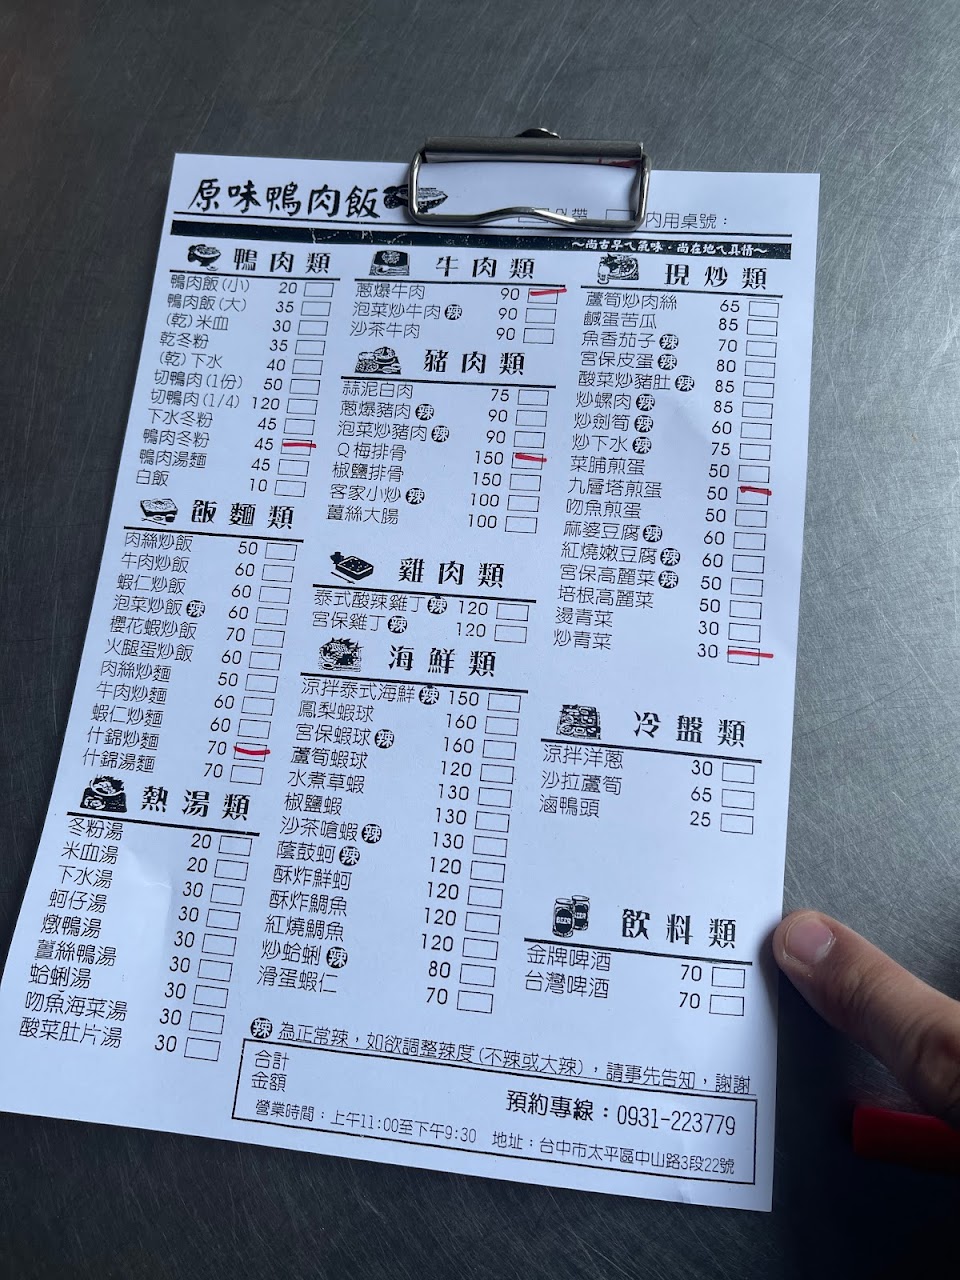 原味鴨肉飯
內用桌號：
～尚古早ㄟ氣味・尚在地ㄟ真情～
鴨肉類
鴨肉飯(小) 20
鴨肉飯(大) 35
(乾)米血 30
乾冬粉 35
(乾)下水 40
切鴨肉(1份) 50
切鴨肉(1/4) 120
下水冬粉 45
鴨肉冬粉 45
鴨肉湯麵 45
白飯 10
飯麵類
肉絲炒飯 50
牛肉炒飯 60
蝦仁炒飯 60
泡菜炒飯 辣 60
櫻花蝦炒飯 70
火腿蛋炒飯 60
肉絲炒麵 50
牛肉炒麵 60
蝦仁炒麵 60
什錦炒麵 70
什錦湯麵 70
熱湯類
冬粉湯 20
米血湯 20
下水湯 30
蚵仔湯 30
燉鴨湯 30
薑絲鴨湯 30
蛤蜊湯 30
吻魚海菜湯 30
酸菜肚片湯 30
牛肉類
蔥爆牛肉 90
泡菜炒牛肉 辣 90
沙茶牛肉 90
豬肉類
蒜泥白肉 75
蔥爆豬肉 辣 90
泡菜炒豬肉 辣 90
Q梅排骨 150
椒鹽排骨 150
客家小炒 辣 100
薑絲大腸 100
雞肉類
泰式酸辣雞丁 辣 120
宮保雞丁 辣 120
海鮮類
涼拌泰式海鮮 辣 150
鳳梨蝦球 160
宮保蝦球 辣 160
蘆筍蝦球 120
水煮草蝦 130
椒鹽蝦 130
沙茶嗆蝦 辣 130
蔭鼓蚵 辣 120
酥炸鮮蚵 120
酥炸鯛魚 120
紅燒鯛魚 120
炒蛤蜊 辣 80
滑蛋蝦仁 70
現炒類
蘆筍炒肉絲 65
鹹蛋苦瓜 85
魚香茄子 辣 70
宮保皮蛋 辣 80
酸菜炒豬肚 辣 85
炒螺肉 辣 85
炒劍筍 辣 60
炒下水 辣 75
菜脯煎蛋 50
九層塔煎蛋 50
吻魚煎蛋 50
麻婆豆腐 辣 60
紅燒嫩豆腐 辣 60
宮保高麗菜 辣 50
培根高麗菜 50
燙青菜 30
炒青菜 30
冷盤類
涼拌洋蔥 30
沙拉蘆筍 65
滷鴨頭 25
飲料類
BEER
金牌啤酒 70
台灣啤酒 70
辣 為正常辣，如欲調整辣度(不辣或大辣)，請事先告知，謝謝
合計
金額
預約專線：0931-223779
營業時間：上午11:00至下午9:30 地址：台中市太平區中山路3段22號